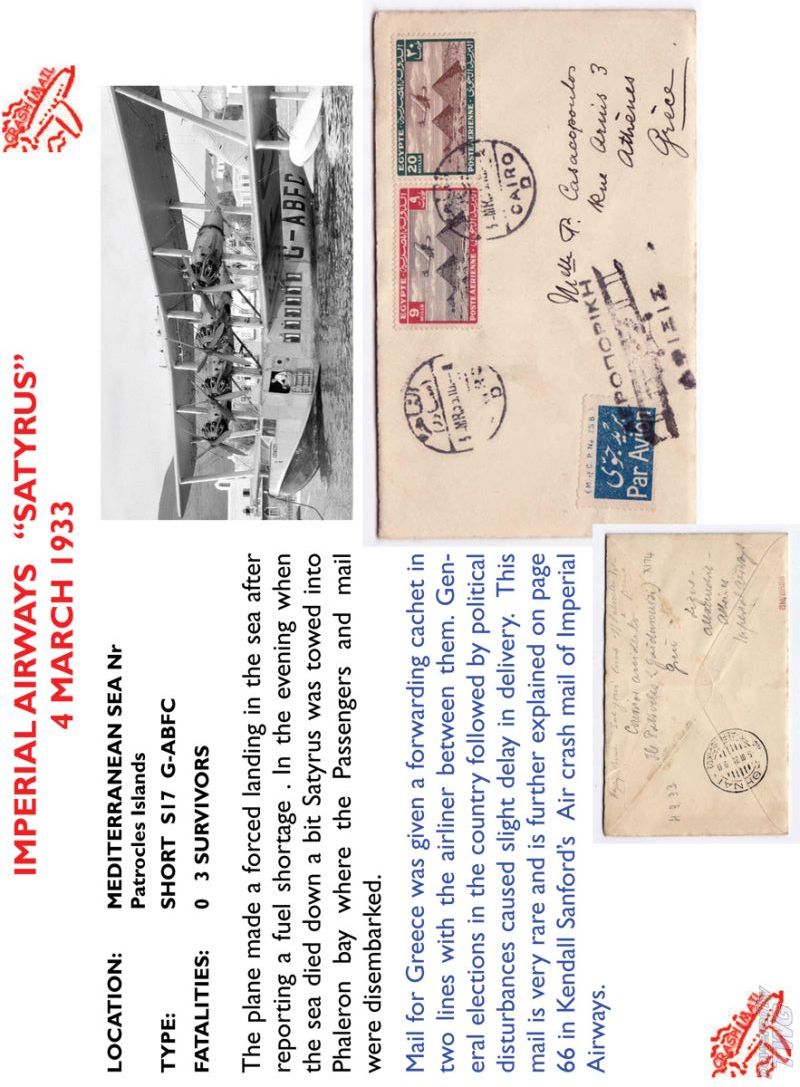 IMPERIAL AIRWAYS “SATYRUS”
4 MARCH 1933
CRASH MAIL
LOCATION: MEDITERRANEAN SEA Nr
Patrocles Islands
TYPE: SHORT S17 G-ABFC
FATALITIES: 0 3 SURVIVORS
G-ABFC
The plane made a forced landing in the sea after
reporting a fuel shortage . In the evening when
the sea died down a bit Satyrus was towed into
Phaleron bay where the Passengers and mail
were disembarked.
Mail for Greece was given a forwarding cachet in
two lines with the airliner between them. Gen-
eral elections in the country followed by political
disturbances caused slight delay in delivery. This
mail is very rare and is further explained on page
66 in Kendall Sanford’s Air crash mail of Imperial
Airways.
EGYPTE
9
MILLS
POSTE AERIENNE
EGYPTE
20
MILLS
٢٠
POSTE AERIENNE
CAIRO
D
القاهرة
D
Mlle P. Casacopoulos
Rue Arius 3
Athènes
Grèce
بريد جوى
Par Avion
ΡΟΠΟΡΙΚΗ
ΑΦΙΞΙΣ
4.3.33
Athènes
ΑΘΗΝΑΙ
CRASH MAIL